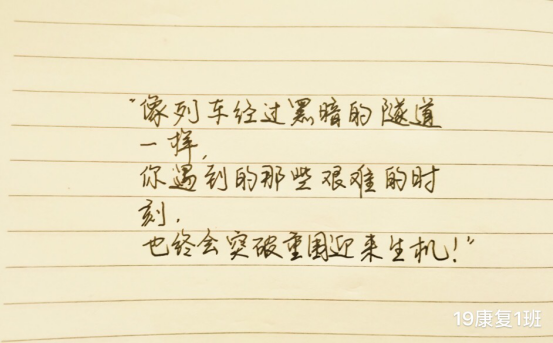 “像列车经过黑暗的隧道
一样,
你遇到的那些艰难的时
刻,
也终会突破重围迎来生机!”
19康复1班